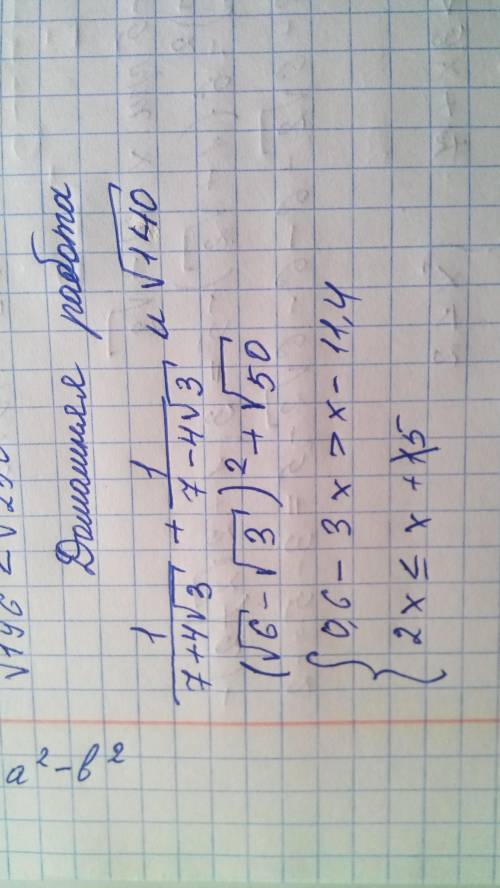 √196 < √2
Домашняя работа
1/(7+4√3) + 1/(7-4√3) и √140
(√6-√3)² + √50
{ 0,6 - 3x > x - 11,4
2x ≤ x + 5
a² - b²